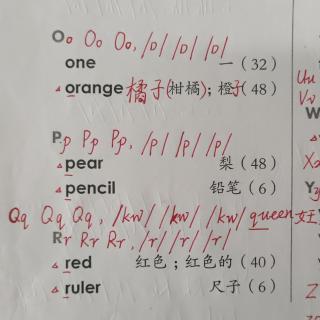 Oo Oo Oo, /ɒ/ /ɒ/ /ɒ/
one 一（32）
orange 橘子(柑橘)；橙子（48）
Pp Pp Pp, /p/ /p/ /p/
pear 梨（48）
pencil 铅笔（6）
Qq Qq Qq, /kw/ /kw/ /kw/ queen 女王
Rr Rr Rr, /r/ /r/ /r/
red 红色；红色的（40）
ruler 尺子（6）
Uu
W
Y
Z